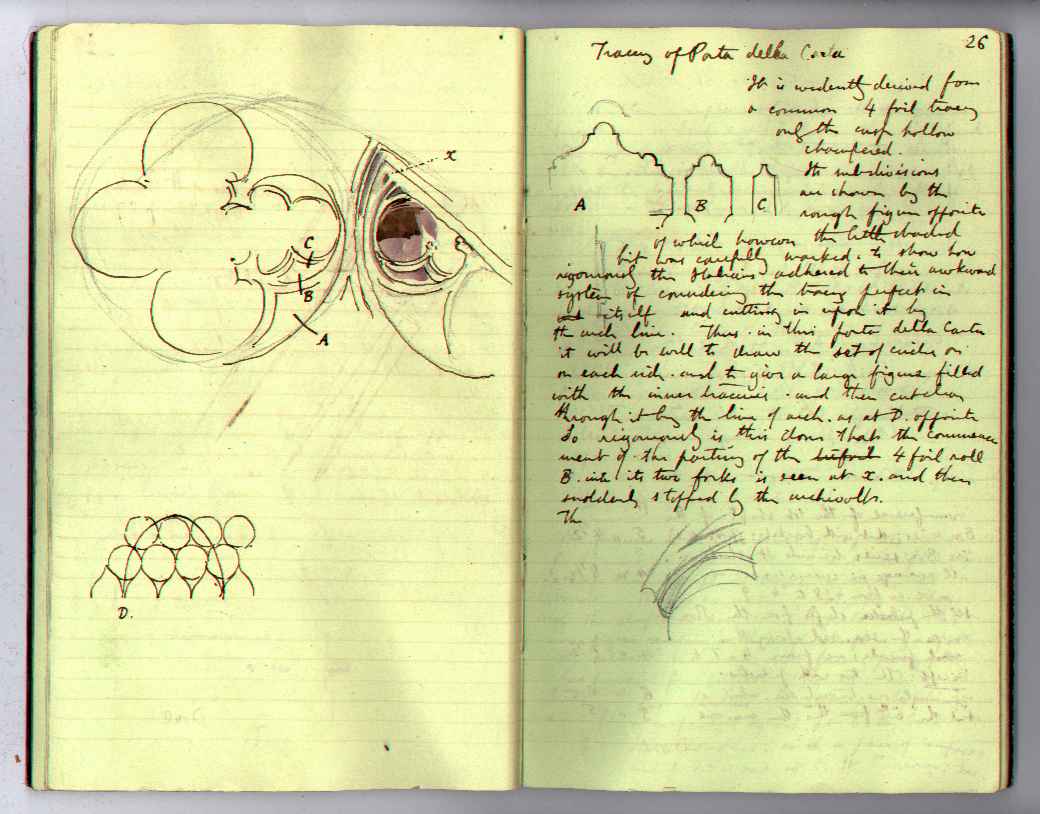 x
C
B
A
D.
26
Tracery of Porta della Carta
It is evidently derived from
a common 4 foil tracery
only the cusp hollow
chamfered.
Its subdivisions
are shown by the
rough figure opposite
A B C
of which however the little shaded
bit was carefully worked. to show how
rigorously the Italians adhered to their awkward
system of considering the tracery perfect in
itself and cutting in upon it by
the arch line. Thus. in this porta della Carta
it will be well to draw the set of circles on
on each side. and to give a large figure filled
with the inner traceries. and then cut clean
through it by the line of arch. as at D. opposite
So rigorously is this done that the commence
ment of the parting of the 4 foil roll
B. into its two forks is seen at x. and then
suddenly stopped by the archivolt.
Th